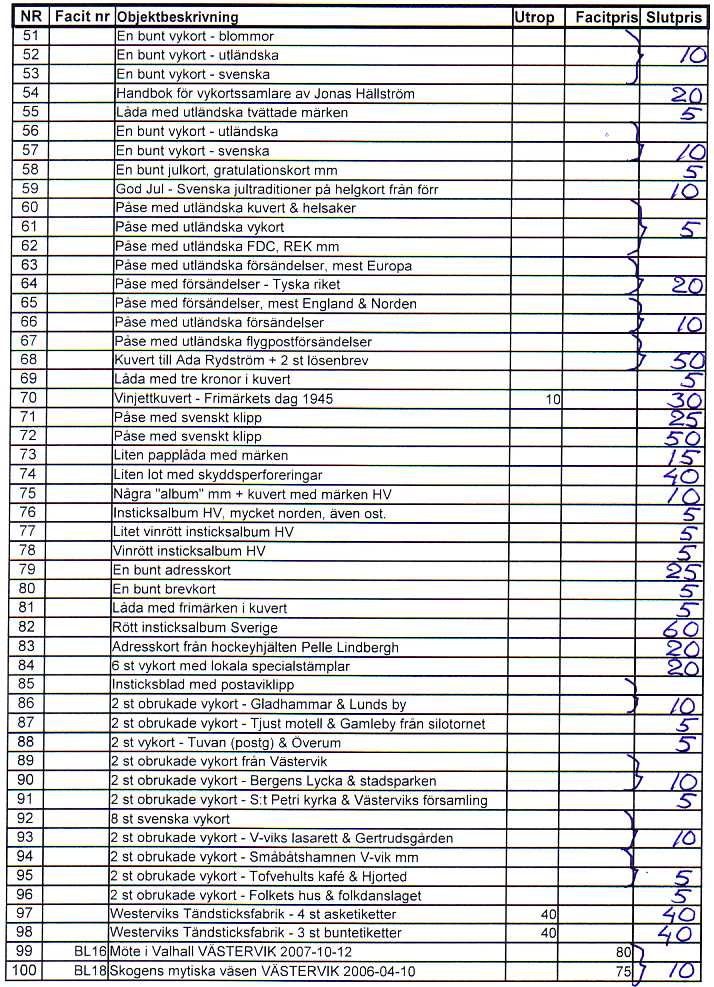 NR Facit nr Objektbeskrivning Utrop Facitpris Slutpris
51 En bunt vykort - blommor
52 En bunt vykort - utländska 10
53 En bunt vykort - svenska
54 Handbok för vykortssamlare av Jonas Hällström 20
55 Låda med utländska tvättade märken 5
56 En bunt vykort - utländska
57 En bunt vykort - svenska 10
58 En bunt julkort, gratulationskort mm 5
59 God Jul - Svenska jultraditioner på helgkort från förr 10
60 Påse med utländska kuvert & helsaker
61 Påse med utländska vykort 5
62 Påse med utländska FDC, REK mm
63 Påse med utländska försändelser, mest Europa
64 Påse med försändelser - Tyska riket 20
65 Påse med försändelser, mest England & Norden
66 Påse med utländska försändelser 10
67 Påse med utländska flygpostförsändelser
68 Kuvert till Ada Rydström + 2 st lösenbrev 50
69 Låda med tre kronor i kuvert 5
70 Vinjettkuvert - Frimärkets dag 1945 10 30
71 Påse med svenskt klipp 25
72 Påse med svenskt klipp 50
73 Liten papplåda med märken 15
74 Liten lot med skyddsperforeringar 40
75 Några "album" mm + kuvert med märken HV 10
76 Insticksalbum HV, mycket norden, även ost. 5
77 Litet vinrött insticksalbum HV 5
78 Vinrött insticksalbum HV 5
79 En bunt adresskort 25
80 En bunt brevkort 5
81 Låda med frimärken i kuvert 5
82 Rött insticksalbum Sverige 60
83 Adresskort från hockeyhjälten Pelle Lindbergh 20
84 6 st vykort med lokala specialstämplar 20
85 Insticksblad med postaviklipp
86 2 st obrukade vykort - Gladhammar & Lunds by 10
87 2 st obrukade vykort - Tjust motell & Gamleby från silotornet 5
88 2 st vykort - Tuvan (postg) & Överum 5
89 2 st obrukade vykort från Västervik
90 2 st obrukade vykort - Bergens Lycka & stadsparken 10
91 2 st obrukade vykort - S:t Petri kyrka & Västerviks församling 5
92 8 st svenska vykort
93 2 st obrukade vykort - V-viks lasarett & Gertrudsgården 10
94 2 st obrukade vykort - Småbåtshamnen V-vik mm
95 2 st obrukade vykort - Tofvehults kafé & Hjorted 5
96 2 st obrukade vykort - Folkets hus & folkdanslaget 5
97 Westerviks Tändsticksfabrik - 4 st asketiketter 40 40
98 Westerviks Tändsticksfabrik - 3 st buntetiketter 40 40
99 BL16 Möte i Valhall VÄSTERVIK 2007-10-12 80
100 BL18 Skogens mytiska väsen VÄSTERVIK 2006-04-10 75 10